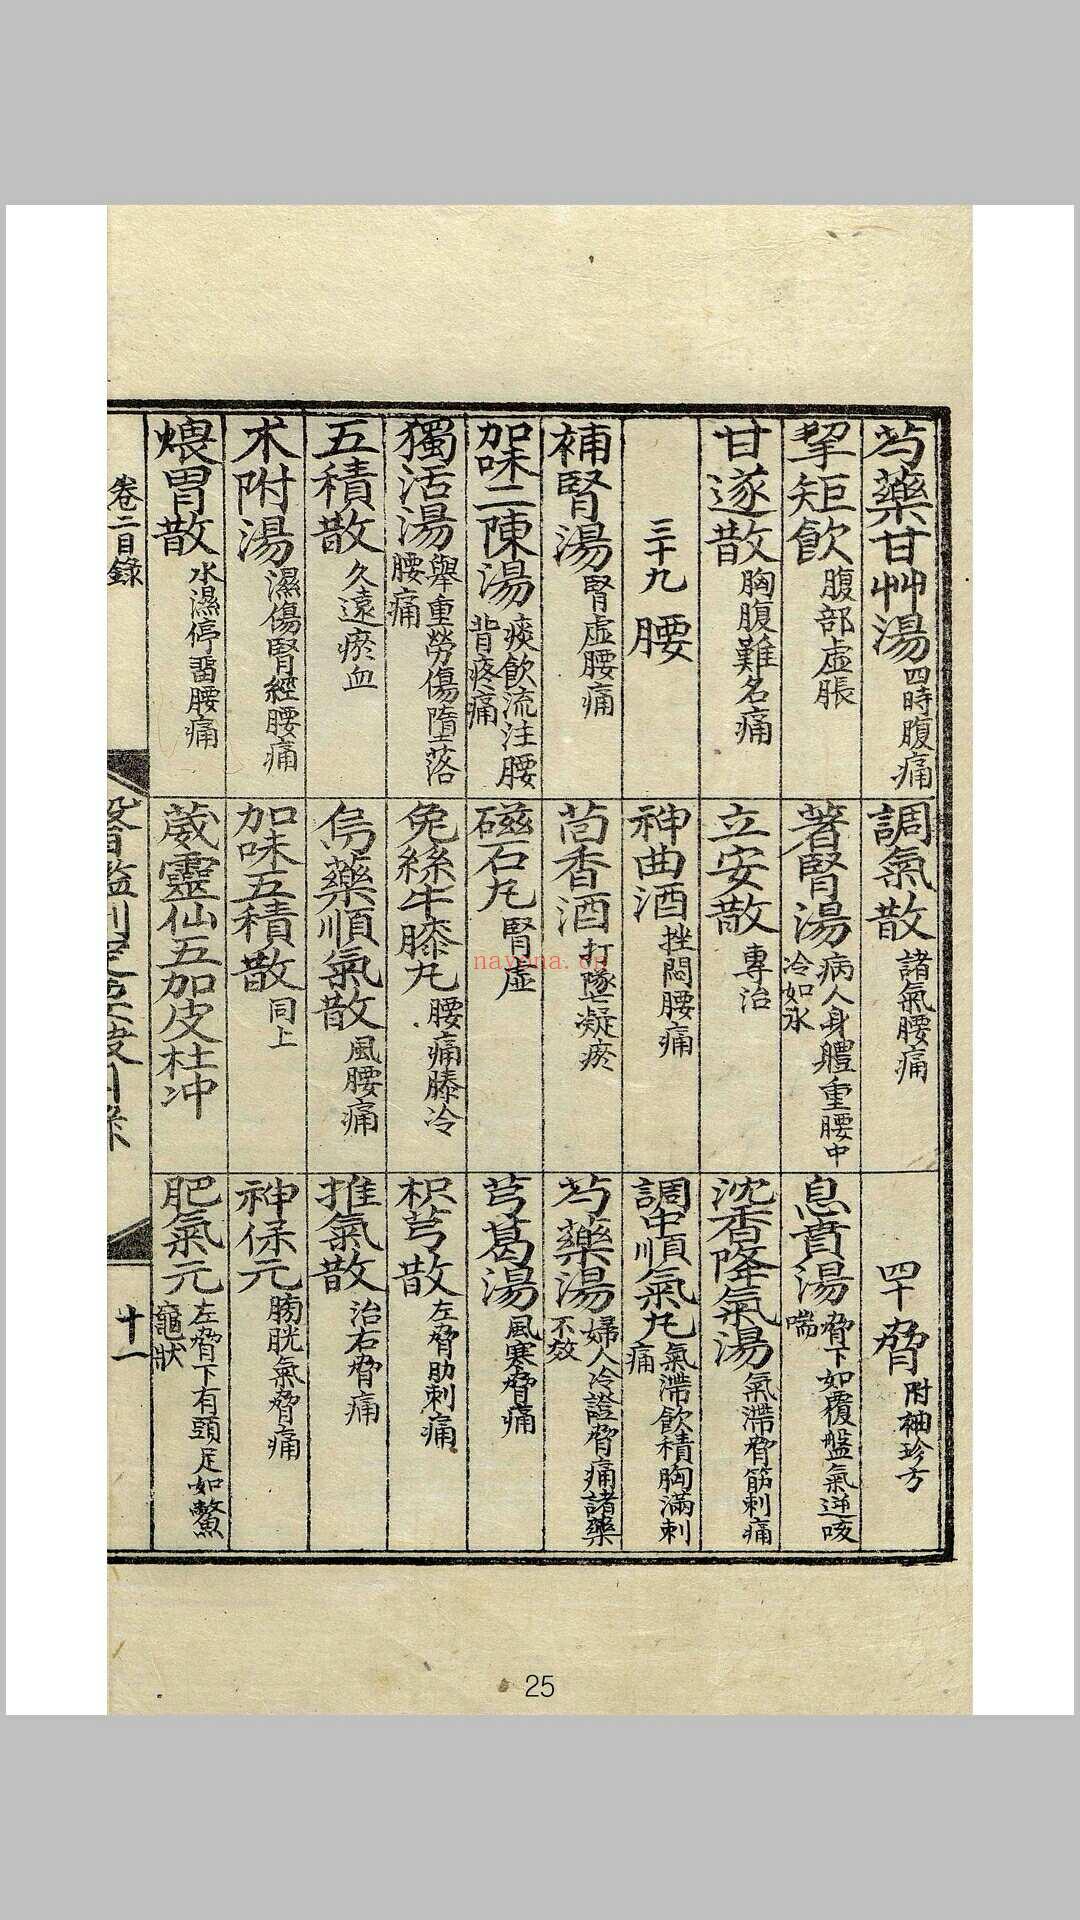 芍藥甘艸湯 四時腹痛
挈矩飲 腹部虛脹
甘遂散 胸腹難名痛
三十九 腰
補腎湯 腎虛腰痛
加味二陳湯 痰飲流注腰背疼痛
獨活湯 舉重勞傷墮落腰痛
五積散 久遠瘀血
朮附湯 濕傷腎經腰痛
煨胃散 水濕停畱腰痛
調氣散 諸氣腰痛
著腎湯 病人身體重腰中冷如氷
立安散 專治
神曲酒 挫悶腰痛
茴香酒 打墜凝瘀
磁石丸 腎虛
兔絲牛膝丸 腰痛膝冷
烏藥順氣散 風腰痛
加味五積散 同上
葳靈仙五加皮杜冲
四十 脅 附袖珍方
息賁湯 脅下如覆盤氣逆咳喘
沈香降氣湯 氣滯脅筋刺痛
調中順氣丸 氣滯飲積胸滿刺痛
芍藥湯 婦人冷證脅痛諸藥不效
芎葛湯 風寒脅痛
枳芎散 左脅肋刺痛
推氣散 治右脅痛
神保元 膀胱氣脅痛
肥氣元 左脅下有頭足如鱉龜狀
卷二目錄
十一
25
nayona.cn